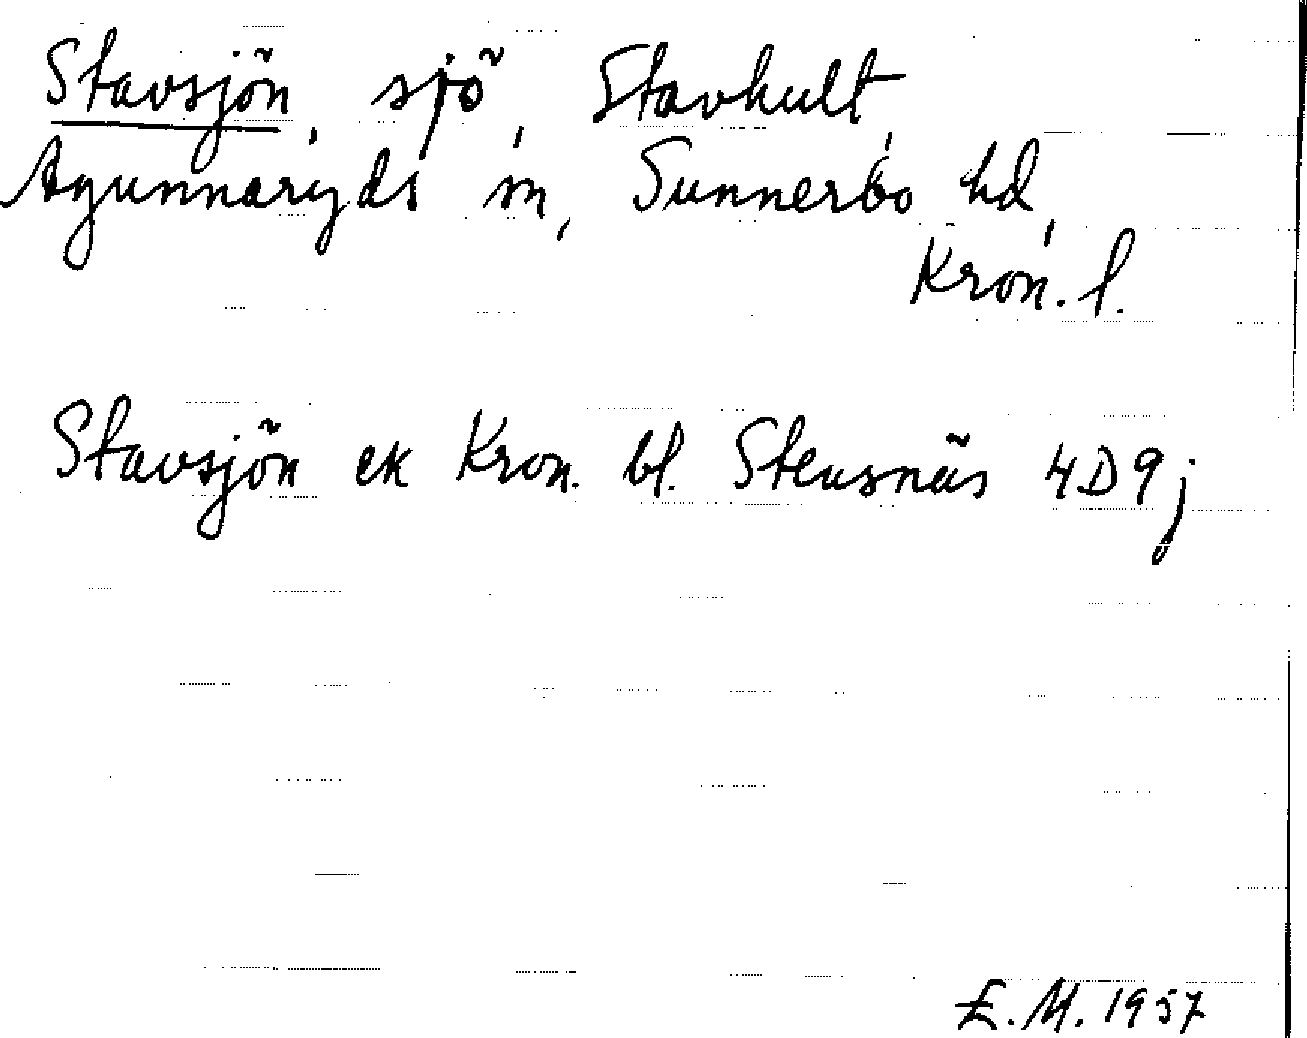 Stavsjön, sjö, Stavhult,
Agunnaryds sn, Sunnerbo hd,
Kron. l.
Stavsjön ek Kron. bl. Stensnäs 4D9j
E.M. 1957